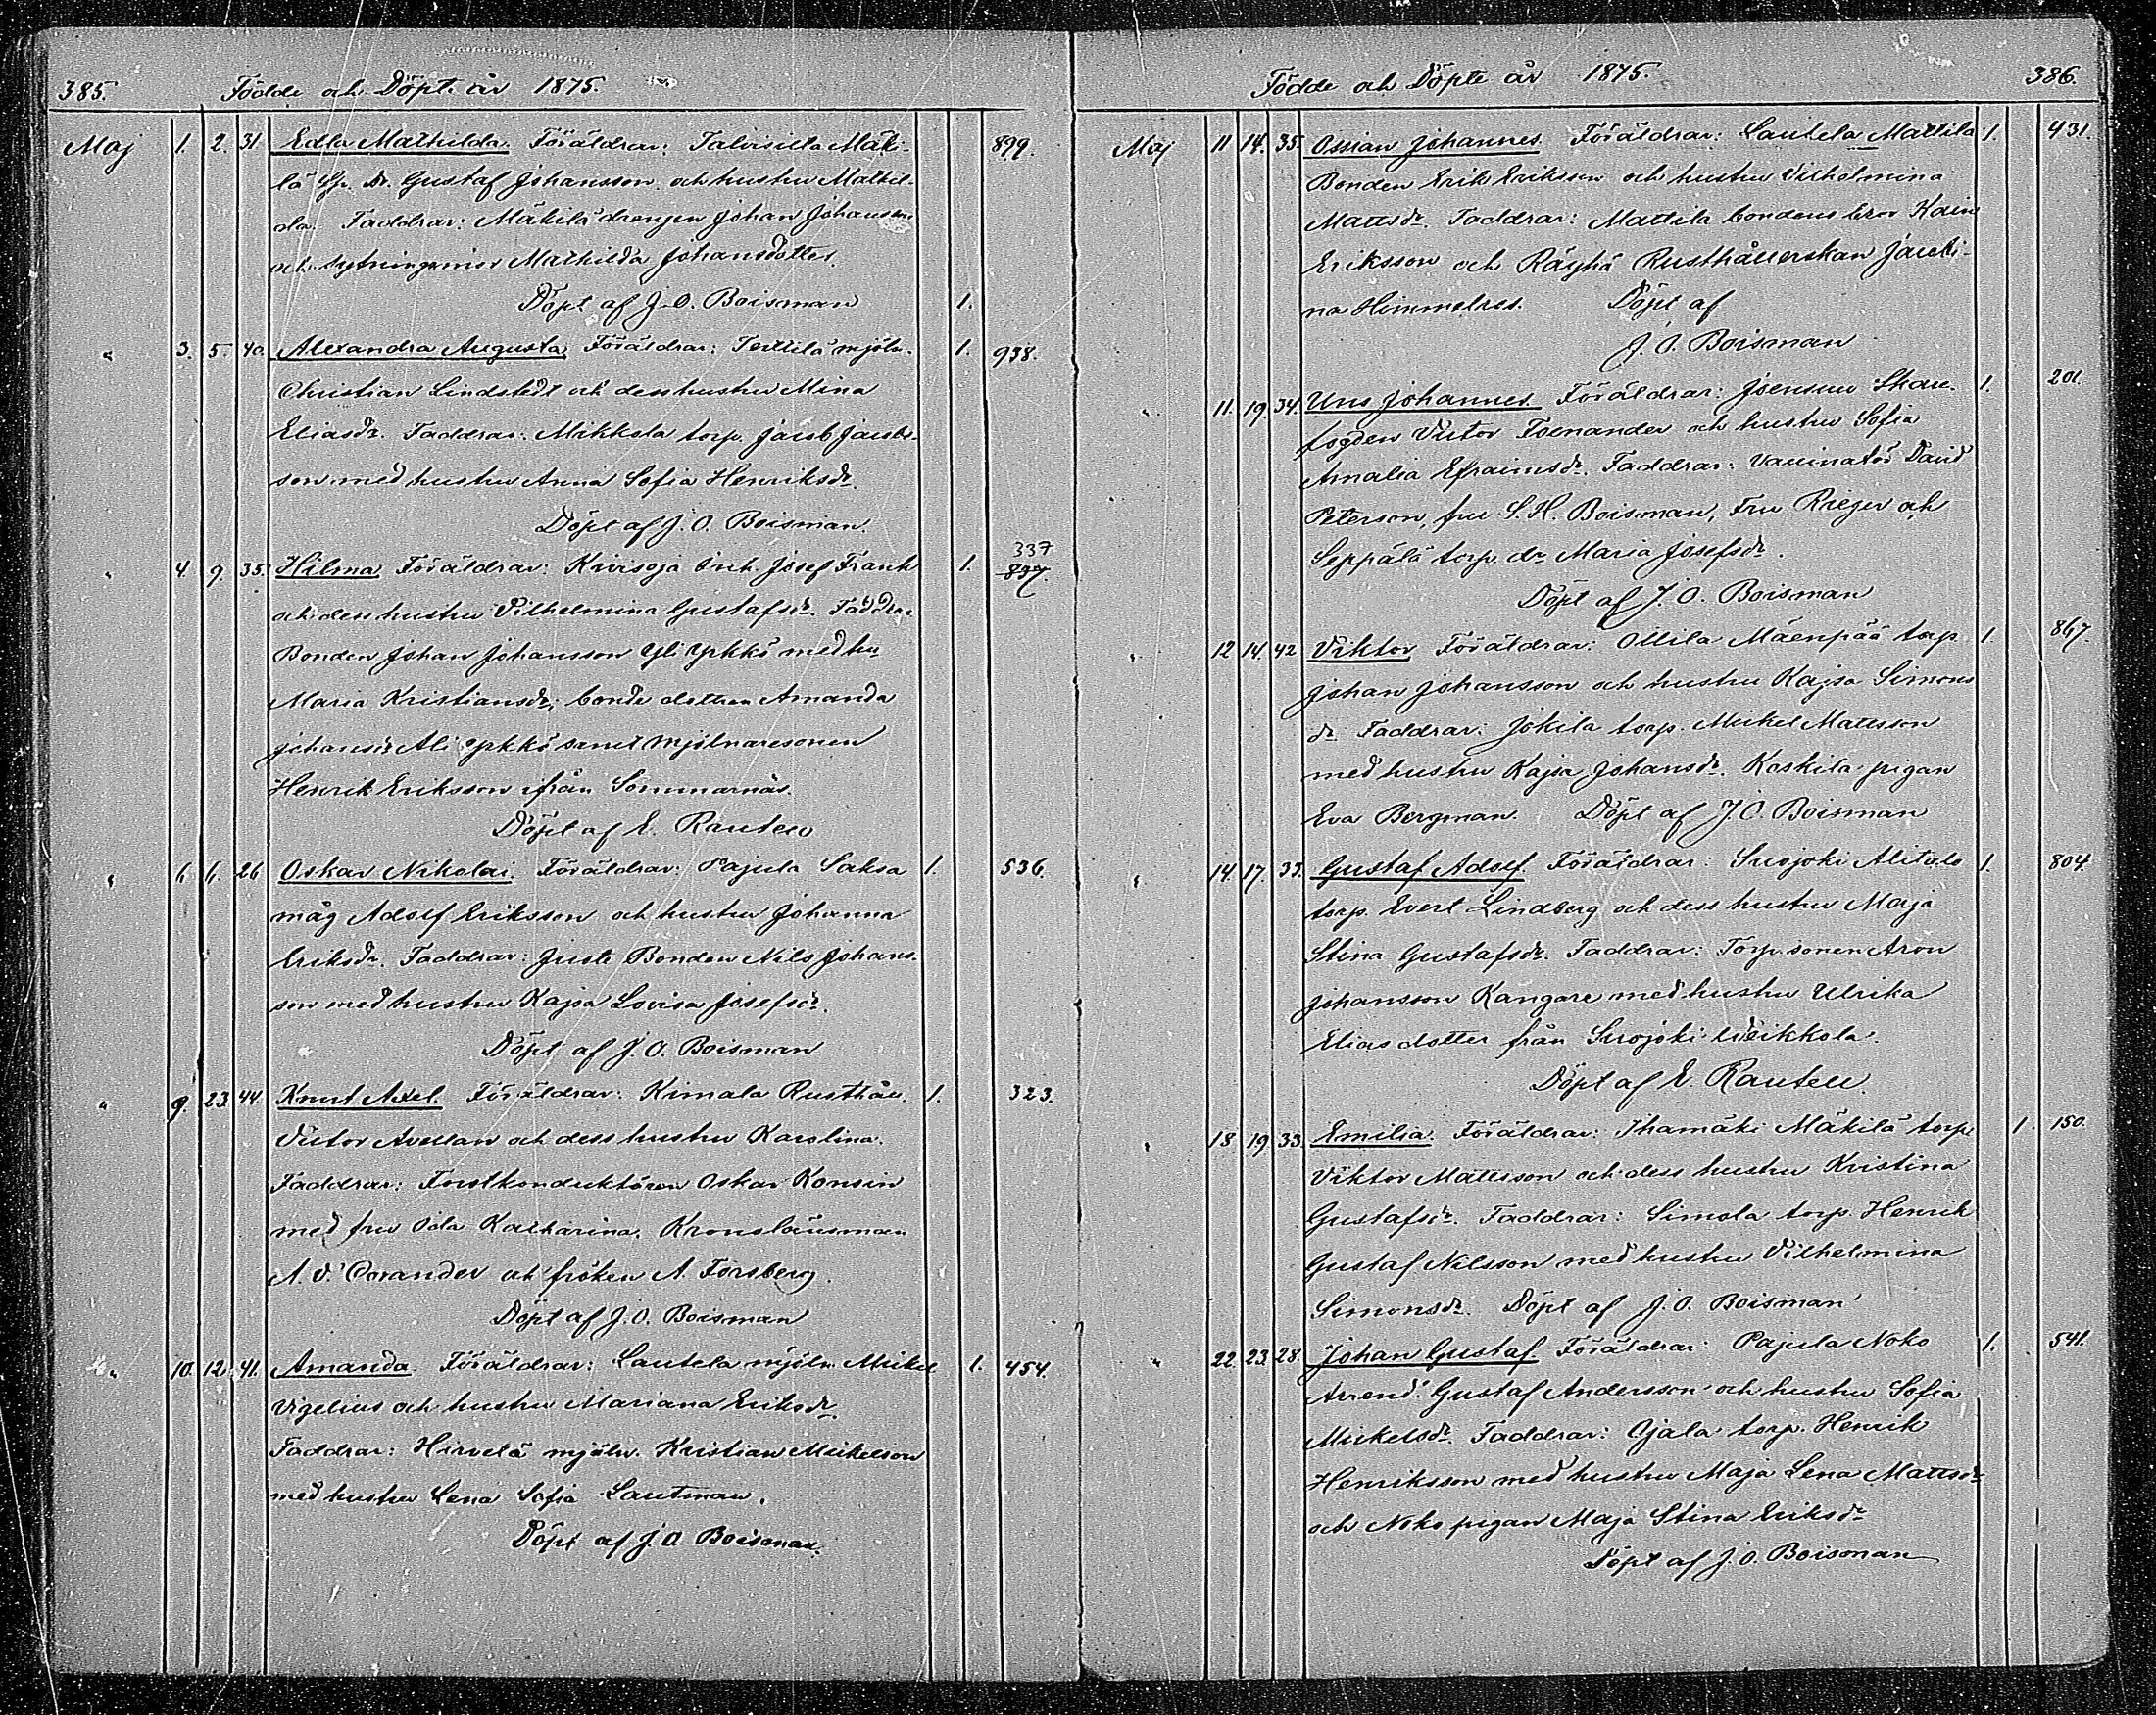 385. Födde och Döpte år 1875.
Maj 1. 2. 31 Edla Mathilda. Föräldrar: Talvisilta Mäki- 899.
lä Gustaf Johansson och hustru Mathil-
da. Faddrar: Mäkilä drengen Johan Johansson
och Mathilda Johansdotter.
Döpt af J. O. Boisman 1.
" 3. 5. 40. Alexandra Augusta. Föräldrar: Terttilä mjöln. 1. 938.
Christian Lindstedt och dess hustru Mina
Eliasdr. Faddrar: Mikkola torp. Jacob Jacobs-
son med hustru Anna Sofia Henriksdr.
Döpt af J. O. Boisman.
337
" 4. 9. 35. Hilma Föräldrar: Kivisoja Inh. Josef Frank 1. 837.
och dess hustru Vilhelmina Gustafsdr. Faddrar
Bonden Johan Johansson Yli Ypkkö med hu
Maria Kristiansdr, bonde dottren Amanda
Johansdr Ali Ypkkö samt Mjölnaresonen
Henrik Eriksson ifrån Sommarnäs.
Döpt af E. Rautell
" 6. 6. 26 Oskar Nikolai. Föräldrar: Pajula Saksa 1. 536.
måg Adolf Eriksson och hustru Johanna
Eriksdr. Faddrar: Juste Bonden Nils Johans-
son med hustru Kajsa Lovisa Josefsdr.
Döpt af J. O. Boisman
" 9. 23. 44. Knut Axel. Föräldrar: Kimala Rusthåll. 1. 323.
Victor Avellan och dess hustru Karolina.
Faddrar: Forstkonduktören Oskar Konsin
med fru Ida Katharina. Kronolänsman
A. V. Corander och fröken A. Forsberg.
Döpt af J. O. Boisman
" 10. 12. 41. Amanda. Föräldrar: Lautela mjöln. Mickel 1. 454.
Vigelius och hustru Mariana Eriksdr.
Faddrar: Hirvelä mjöln. Kristian Mickelson
med hustru Lena Sofia Lautman.
Döpt af J. O Boisman.
Födde och Döpte år 1875. 386.
Maj 11 14. 35. Ossian Johannes. Föräldrar: Lautela Mattila 1. 431.
Bonden Erik Eriksson och hustru Vilhelmina
Mattsdr. Faddrar: Mattila bondens bror Kain
Eriksson och Räyhä Rusthållerskan Jacobi-
na Himmelros. Döpt af
J. O. Boisman
" 11. 19. 34. Uno Johannes. Föräldrar: Joensuu Skall- 1. 201.
fogden Victor Foenander och hustru Sofia
Amalia Efraimsdr. Faddrar: Vaccinatör David
Peterson, fru S. H. Boisman, Fru Rieger och
Seppälä torp. dr Maria Josefsdr.
Döpt af J. O. Boisman
" 12 14. 42 Viktor Föräldrar: Ollila Mäenpää torp 1. 867.
Johan Johansson och hustru Kajsa Simons
dr. Faddrar: Jokila torp. Mickel Mattsson
med hustru Kajsa Johansdr. Kaskila pigan
Eva Bergman. Döpt af J. O. Boisman
" 14. 17. 33. Gustaf Adolf. Föräldrar: Suojoki Alitalo 1. 804.
torp. Evert Lindberg och dess hustru Maja
Stina Gustafsdr. Faddrar: Torp. sonen Aron
Johansson Kangare med hustru Ulrika
Elias dotter från Suojoki Weikkola.
Döpt af E. Rautell.
" 18 19. 33. Emilia. Föräldrar: Ihamäki Mäkilä torp. 1. 150.
Viktor Mattsson och dess hustru Kristina
Gustafsdr. Faddrar: Simola torp. Henrik
Gustaf Nilsson med hustru Vilhelmina
Simonsdr. Döpt af J. O. Boisman
" 22. 23. 28. Johan Gustaf. Föräldrar: Pajula Noko 1. 541.
Arrend. Gustaf Andersson och hustru Sofia
Mickelsdr. Faddrar: Ojala torp. Henrik
Henriksson med hustru Maja Lena Mattsdr
och Noko pigan Maja Stina Eriksdr
Döpt af J. O. Boisman